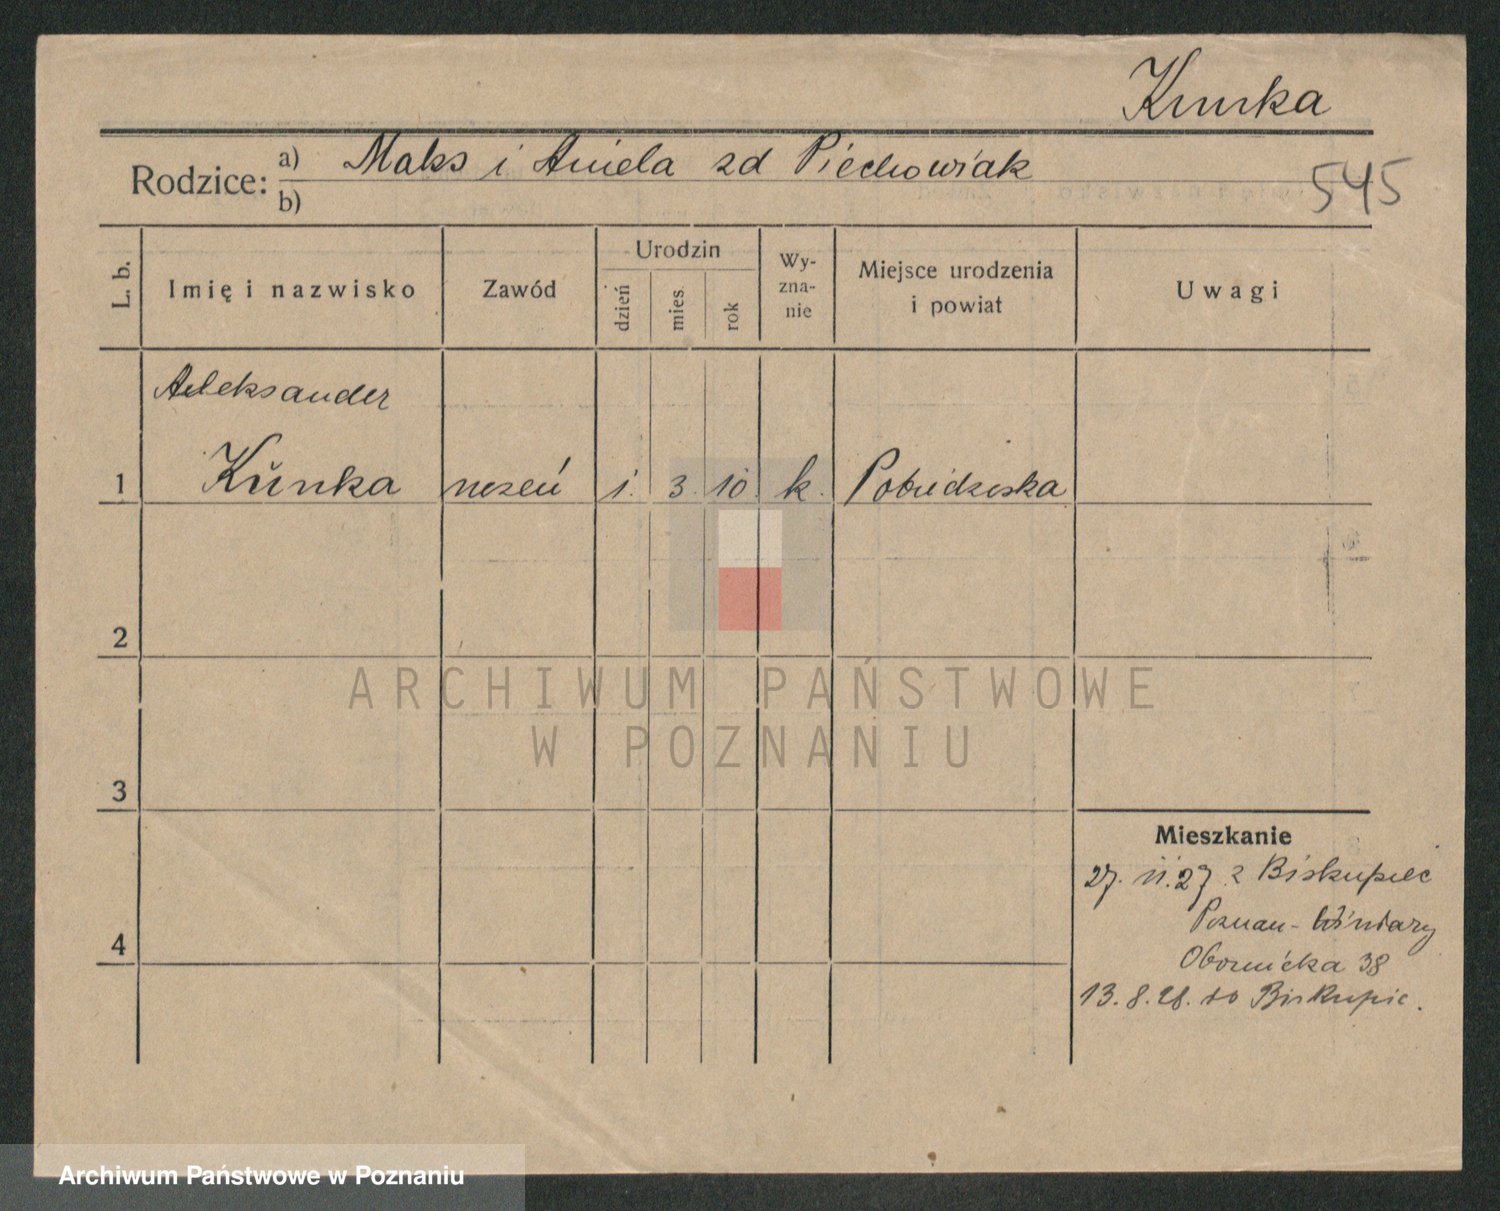 Kunka
Rodzice: a) Maks i Aniela zd Piechowiak
b)
545
L. b.
Imię i nazwisko
Zawód
Urodzin
dzień
mies.
rok
Wy-
zna-
nie
Miejsce urodzenia
i powiat
Uwagi
Aleksander
1 Kŭnka uczeń 1. 3. 10. k. Pobiedziska
2
3
4
ARCHIWUM PAŃSTWOWE
W POZNANIU
Mieszkanie
27. 11. 27 z Biskupiec
Poznan-Winiary
Obornicka 38
13. 8. 28. do Biskupic.
Archiwum Państwowe w Poznaniu